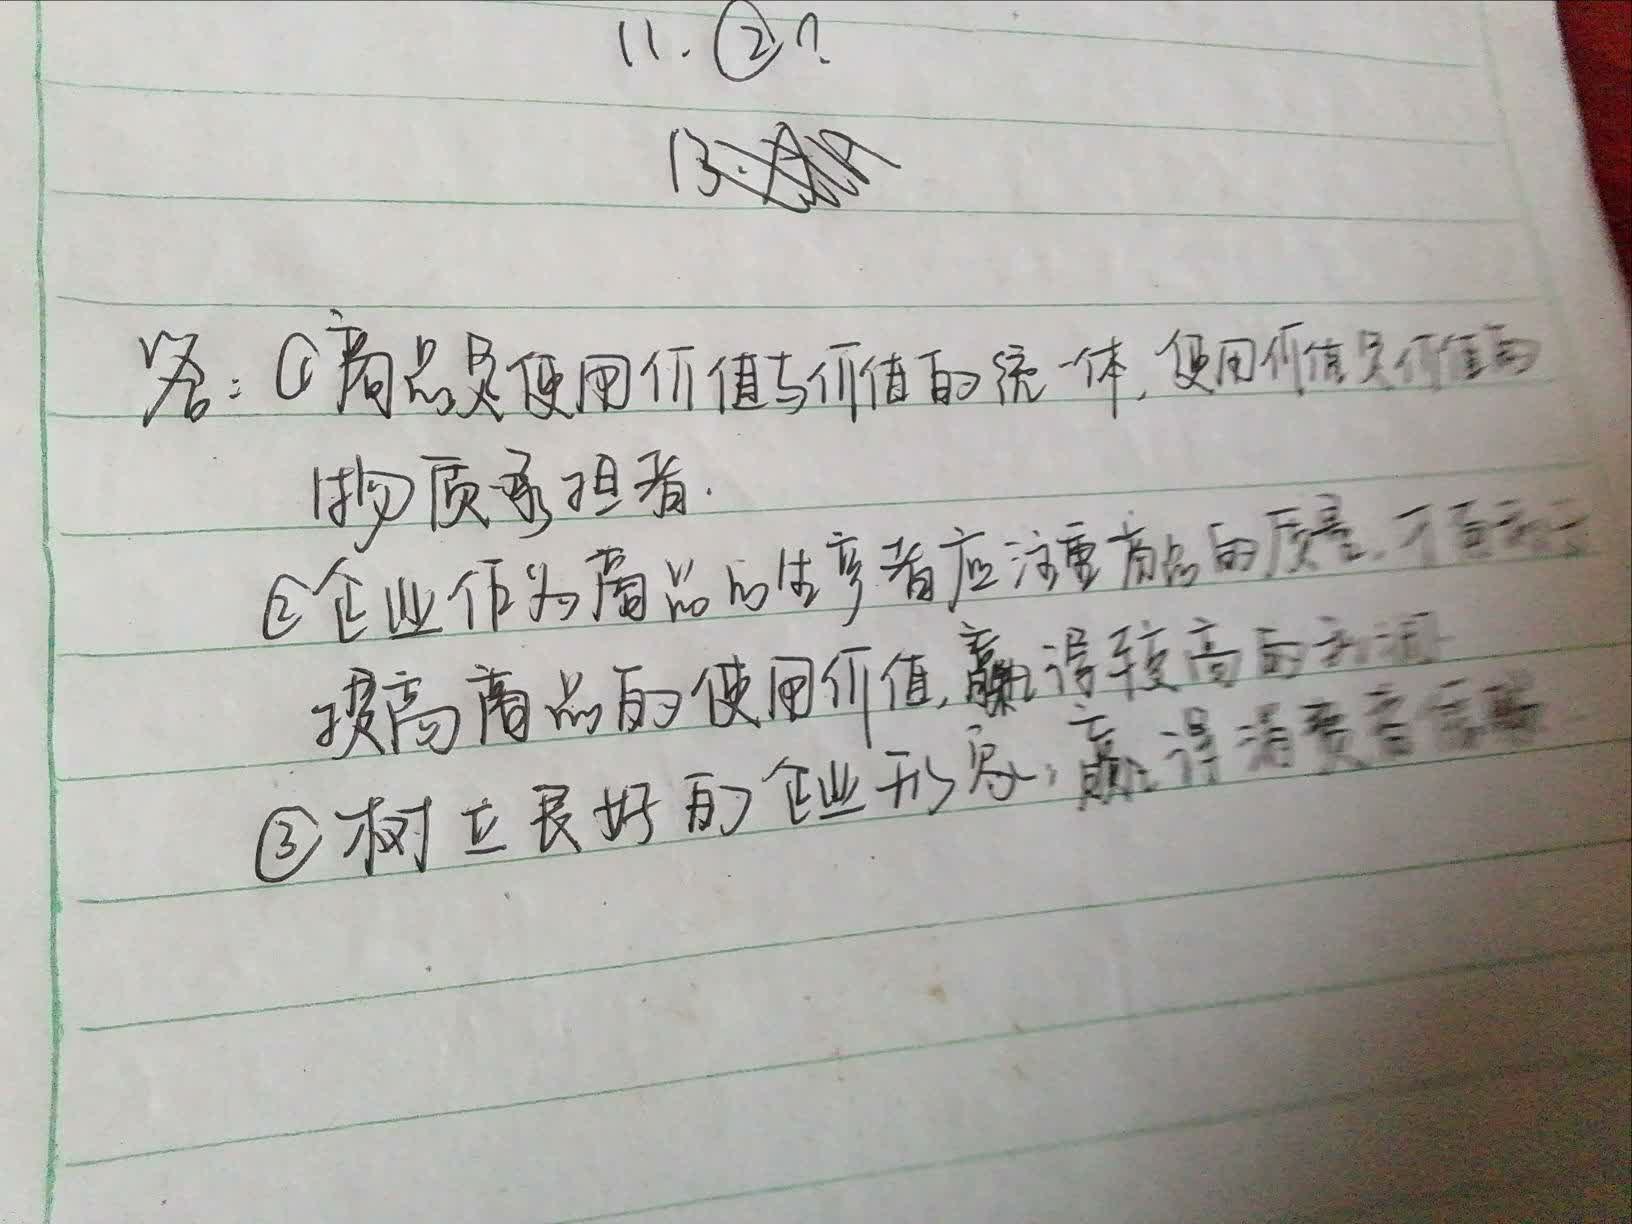 11. ②?
13.
答：①商品是使用价值与价值的统一体，使用价值是价值的
物质承担者.
②企业作为商品的生产者应注重商品的质量，才有利于
提高商品的使用价值，赢得较高的利润
③树立良好的企业形象，赢得消费者信赖